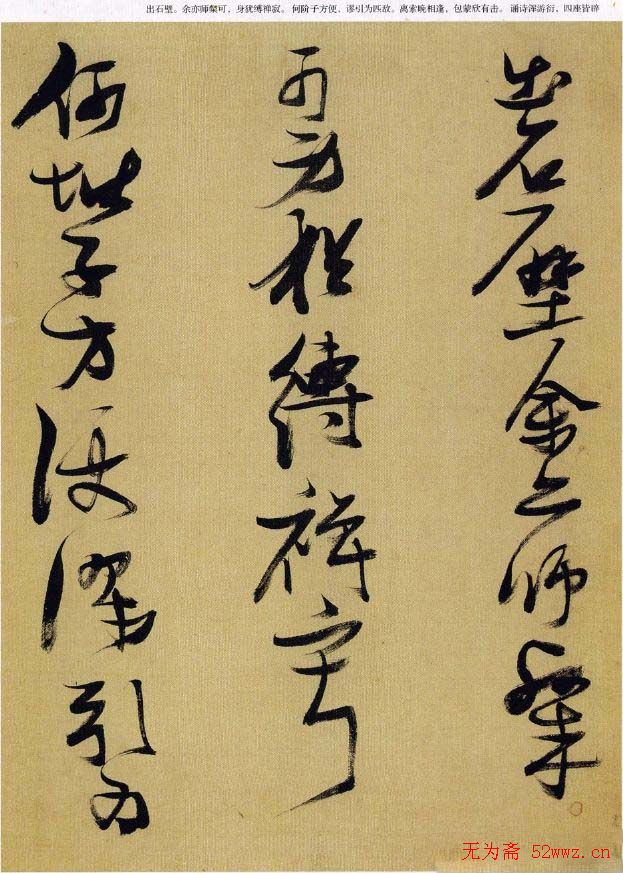 出石壁。余亦师粲可,身犹缚禅寂。何阶子方便,谬引为匹敌。离索晚相逢,包蒙欣有击。诵诗浑游衍,四座皆辟
出石壁余亦師粲
可身猶縛禪寂
何階子方便謬引為
无为斋 52wwz.cn